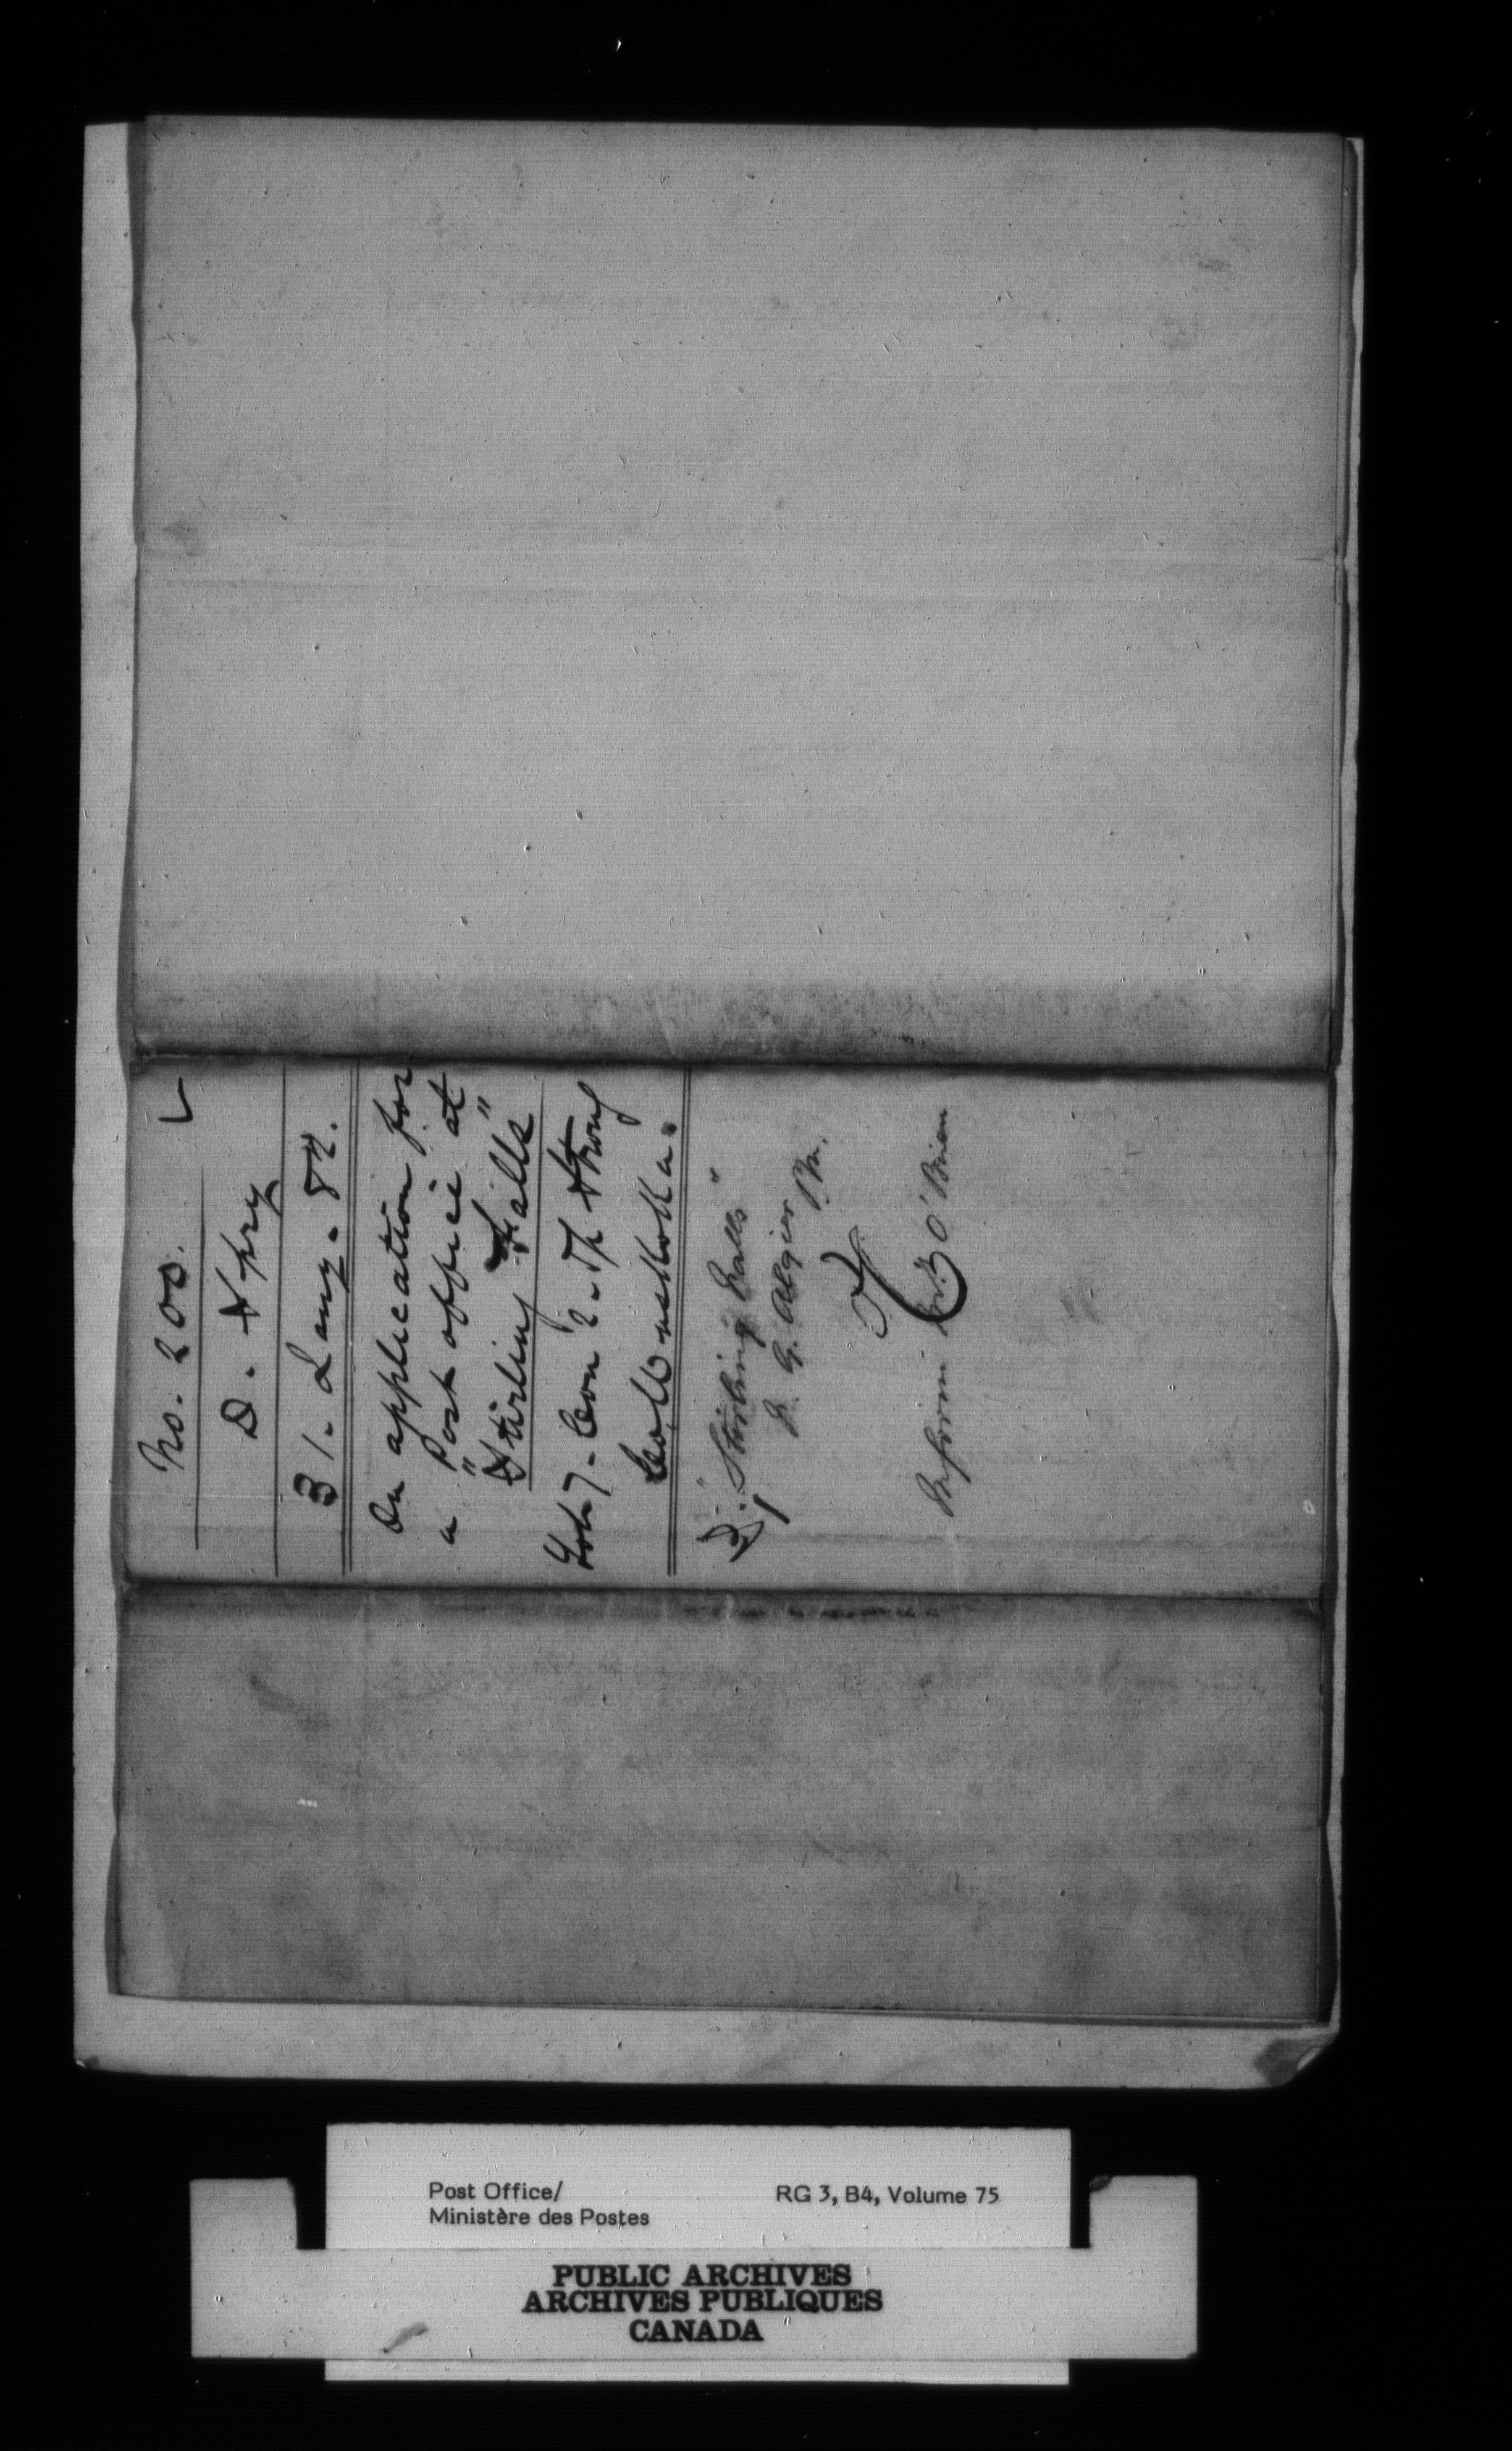 No. 200.
D. Spry
31. Jany. 82.
On application for
a Post office at
"Stirling Falls"
Lot 7 - Con 2. Tp Strong
Co. Muskoka.
"Stirling Falls"
G. Algier P.M.
Inform O'Brien
Post Office/
Ministère des Postes
RG 3, B4, Volume 75
PUBLIC ARCHIVES
ARCHIVES PUBLIQUES
CANADA